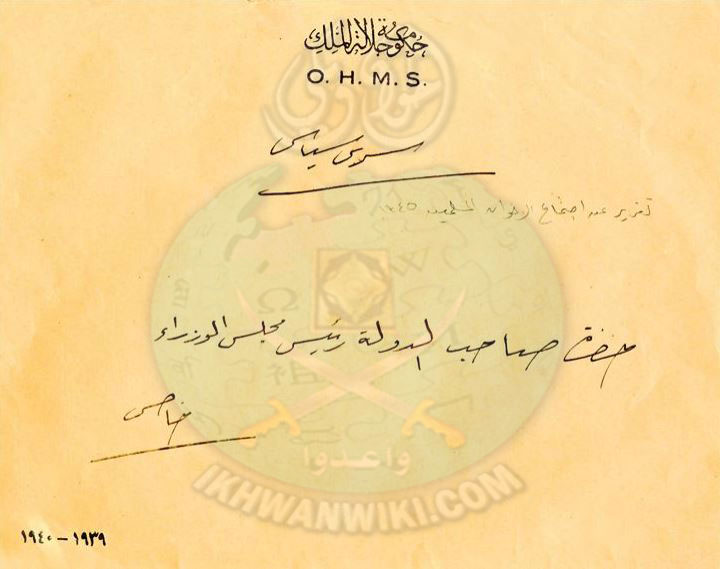 حكومة جلالة الملك
O. H. M. S.
سرى سياسى
تقرير عن اجتماع الاخوان المسلمين ١٩٤٥
حضرة صاحب الدولة رئيس مجلس الوزراء
خاص
واعدوا
IKHWANWIKI.COM
١٩٣٩ – ١٩٤٠